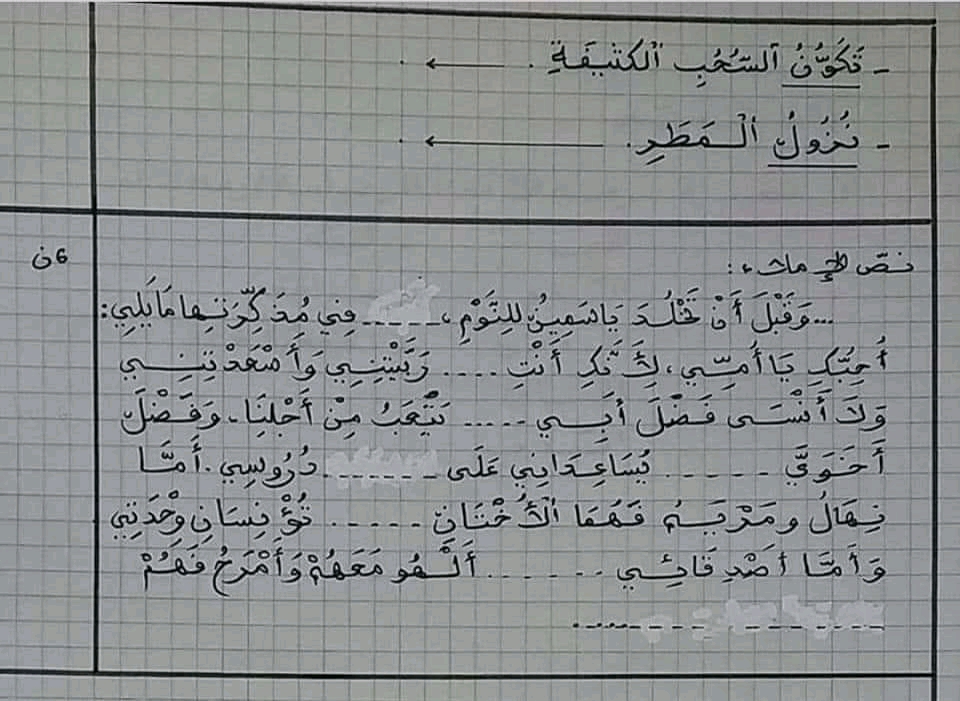 - تَكَوُّنُ ٱلسُّحُبِ ٱلْكَثِيفَةِ . ← .
- نُزُولُ ٱلْـمَطَرِ. ← .
6ن
نـصّ الإملاء :
...وَقَبْلَ أَنْ تَخْلُدَ يَاسَمِينُ لِلنَّوْمِ ، _____ فِي مُذَكِّرَتِـهَا مَا يَلِي:
أُحِبُّكِ يَا أُمِّـي، لِأَنَّكِ أَنْتِ .... رَبَّيْتِنِي وَأَسْعَدْتِنِـي
وَلَا أَنْسَـى فَضْلَ أَبِـي ..... يَتْعَبُ مِنْ أَجْلِنَا . وَفَضْلَ
أَخَوَيَّ ..... يُسَاعِدَانِي عَلَى ...... دُرُوسِي . أَمَّـا
نِـهَالُ و مَرْيَـمُ فَـهُمَا ٱلْأُخْتَانِ ..... تُؤْنِسَانِ وِحْدَتِي
وَأَمَّا أَصْدِقَائِـي ...... أَلْـهُو مَعَهُمْ وَأَمْرَحُ فَهُمْ
........